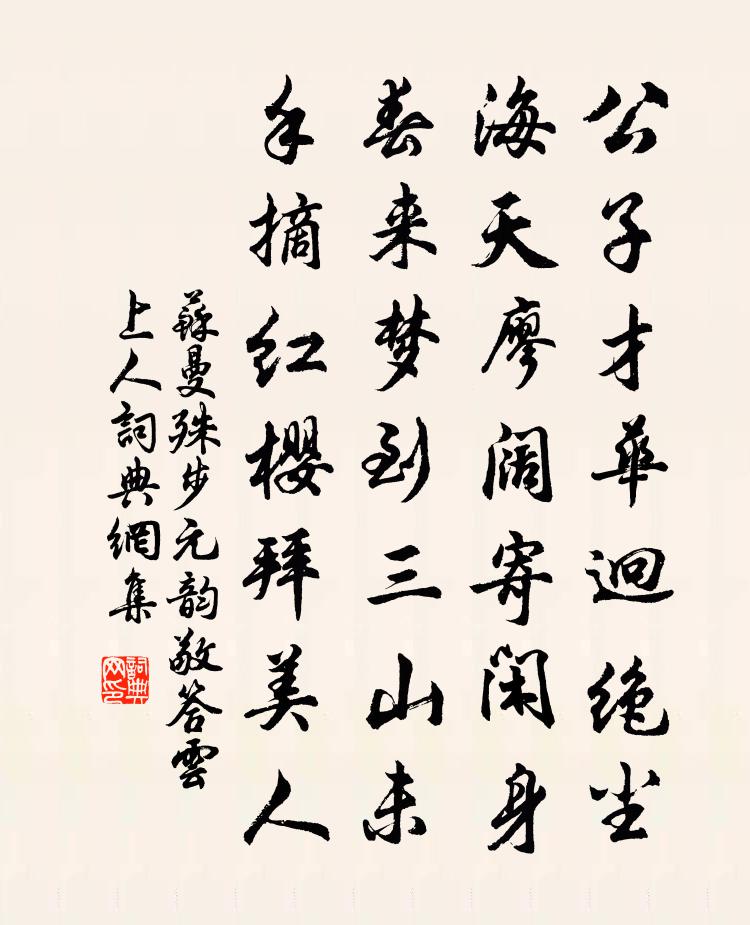 公子才华迥绝尘
海天廖阔寄闲身
春来梦到三山未
手摘红樱拜美人
蘇曼殊步元韵敬答雲
上人詞典網集
詞典网印